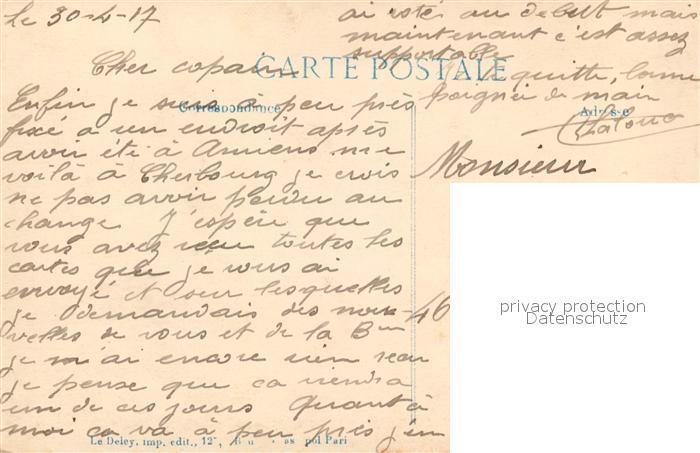 le 30-4-17
Cher copain
CARTE POSTALE
Correspondance
Adresse
Enfin je suis à peu près
fixé à un endroit après
avoir été à Amiens me
voilà à Cherbourg je crois
ne pas avoir perdu au
change. J'espère que
vous avez reçu toutes les
cartes que je vous ai
envoyé et sur lesquelles
je demandais des nou-
velles de vous et de la Bon
je n'ai encore rien reçu
je pense que ca viendra
un de ces jours Quant à
moi ca va à peu près j'en
ai roté au debut mais
maintenant c'est assez
supportable
quitte, bonne
poignée de main
Monsieur
46
privacy protection
Datenschutz
Le Deley, imp. edit., 12
Pari